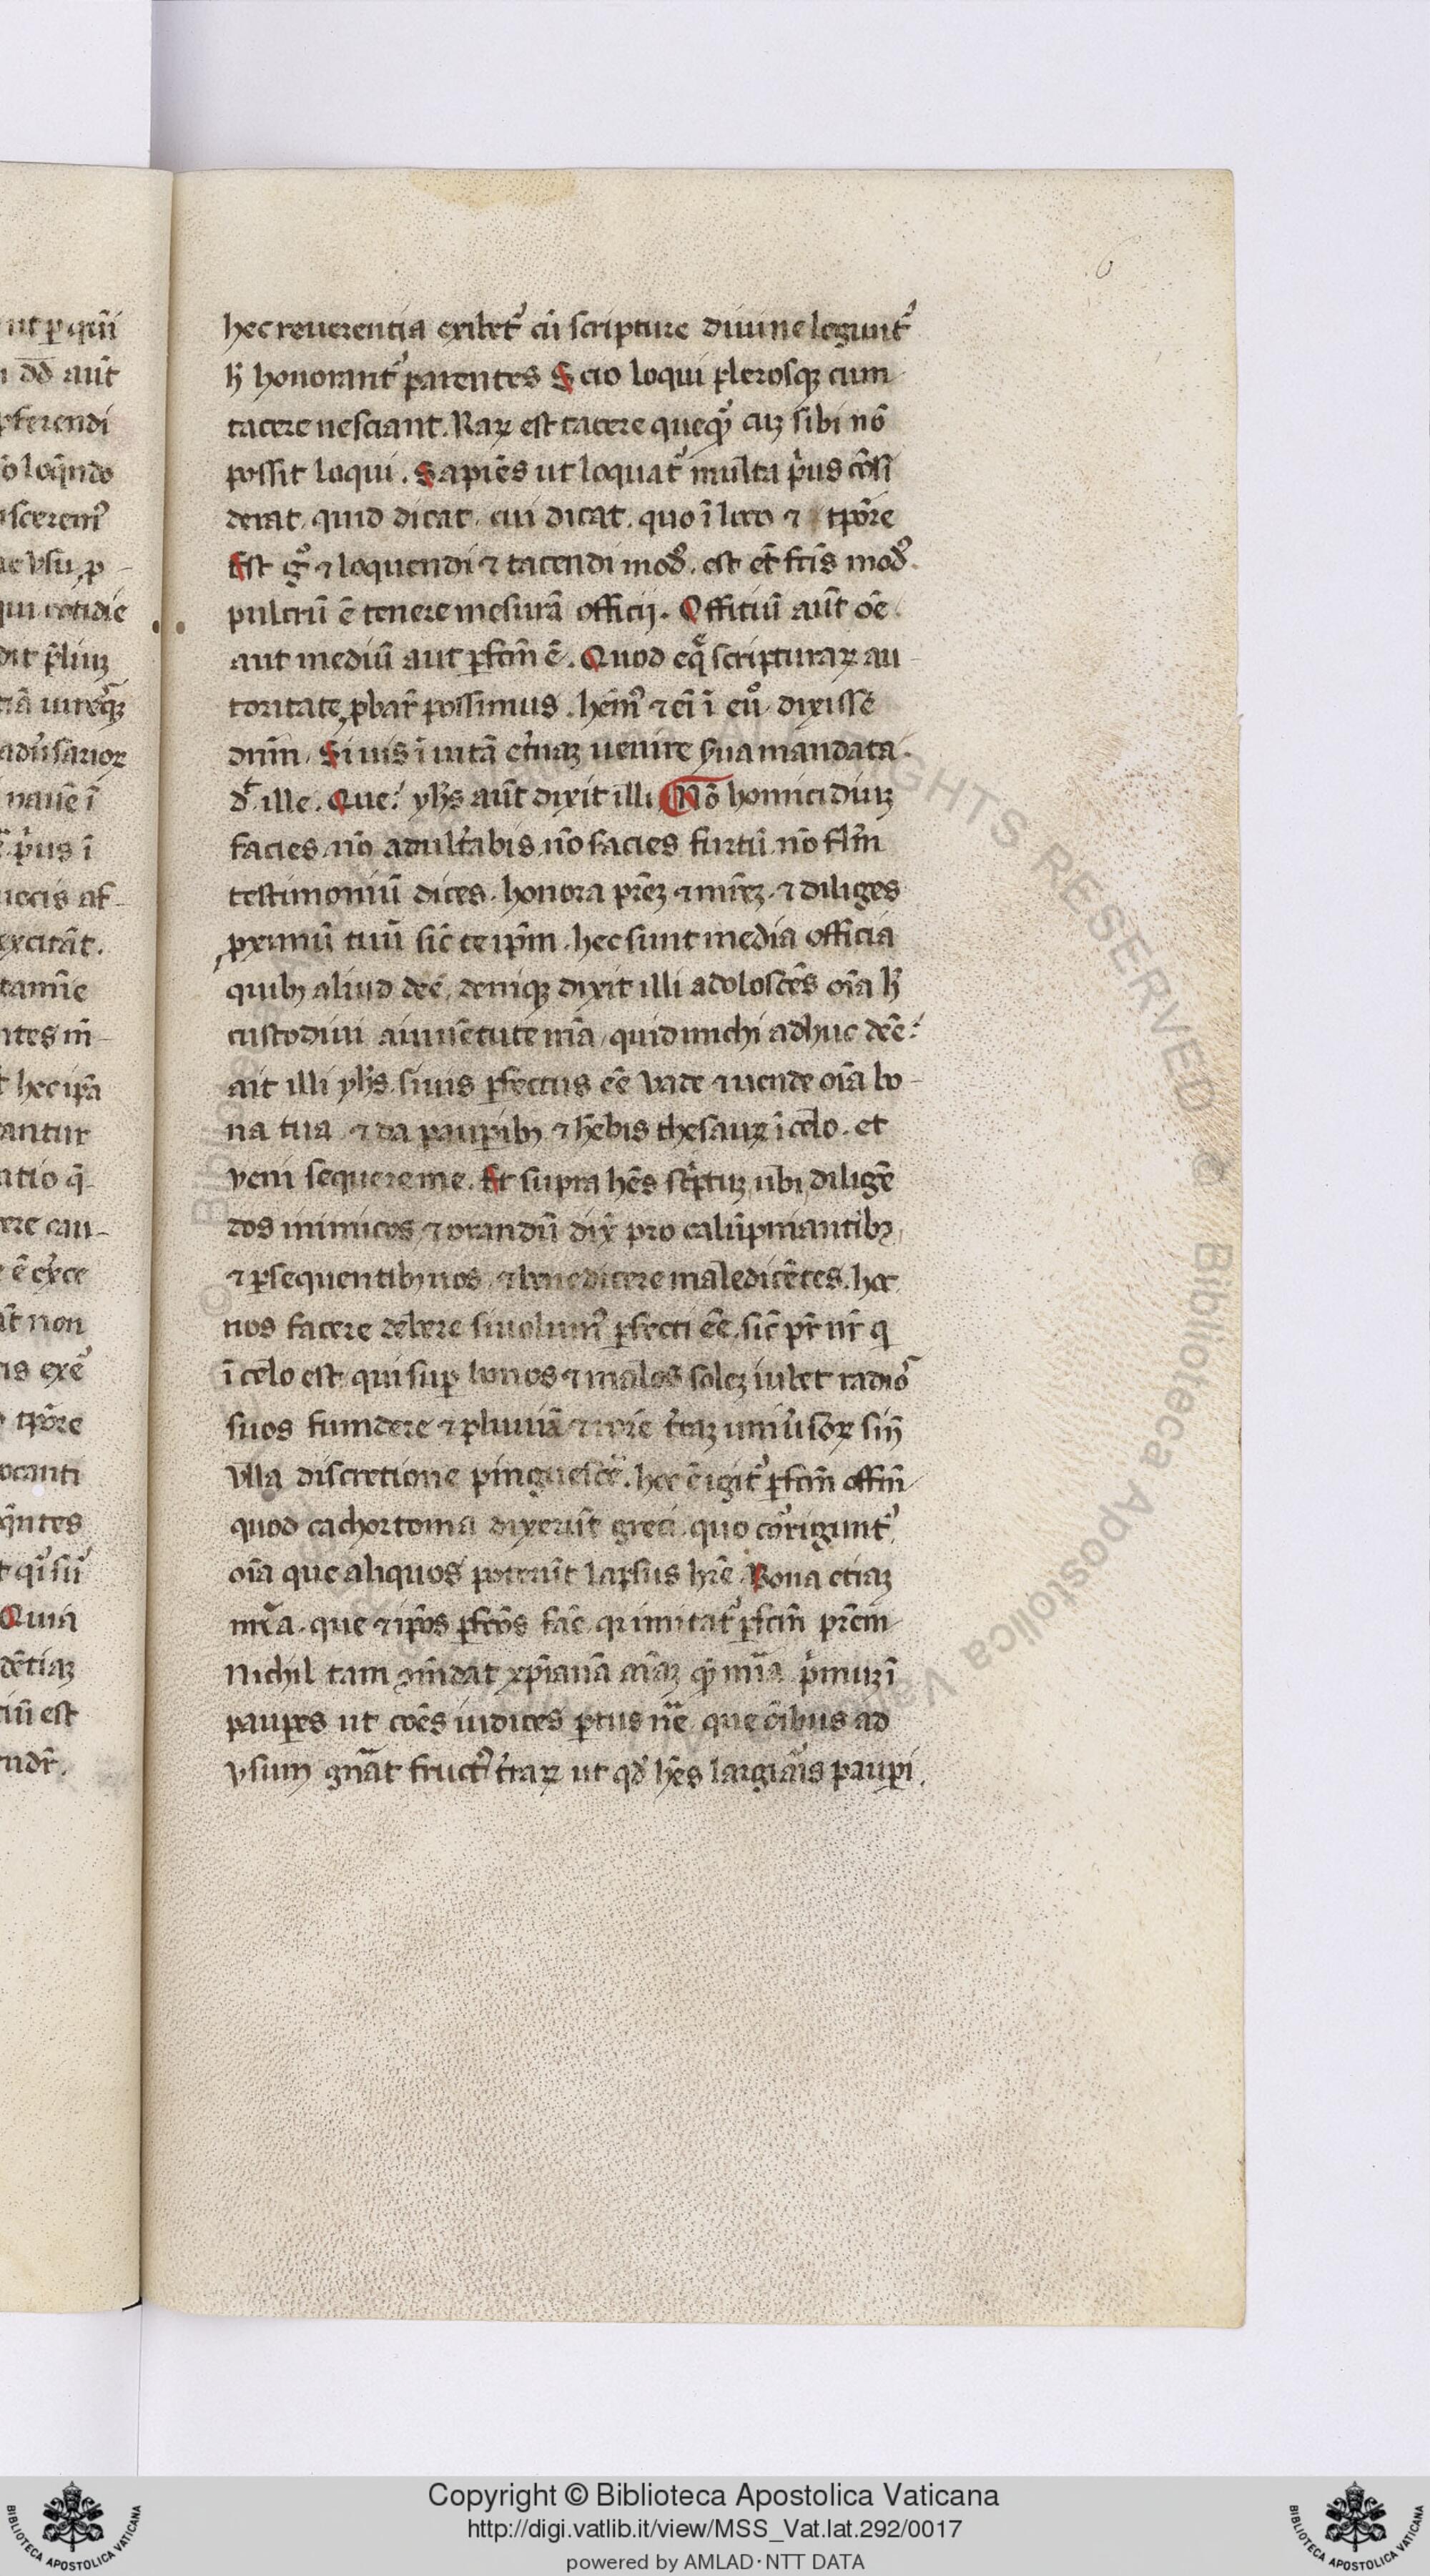 6
hec reuerentia exibet᷑ cū scripture diuine legunt᷑
hͥ honorant᷑ parentes Scio loqui plerosqꝫ cum
tacere nesciant. Raꝝ est tacere quēqꝫ cuꝫ sibi nō
possit loqui. Sapiēs ut loquat᷑ multa pͥus cōsi
derat quid dicat. cui dicat. quo ī loco ⁊ tp̄ore
Est gͦ ⁊ loquendi ⁊ tacendi modꝰ. est et̄ fc̄is modꝰ.
pulcrū ē tenere mesurā officij. Offitiū aūt oē
aut mediū aut ꝑfcm̄ ē. Quod eq̄ scripturaꝝ au-
toritate ꝓbar̄ possimus. hēmꝰ ⁊ ei ī euͦ dixisse
dnm̄. Si uis ī uitā et̓naꝫ uenire ẜua mandata.
dͭ ille. Que? yhs̄ aūt dixit illi Nō homicidiuꝫ
facies. nō adult̓abis. nō facies furtū. nō flm̄
testimoniū dices. honora pr̄eꝫ ⁊ mr̄eꝫ. ⁊ diliges
ꝓximū tuū sic̄ te ip̄m. hec sunt media officia
quibꝫ aliud deē. deniqꝫ dixit illi adolosces̄ oīa hͨ
custodiui a iuuētute mā quid michi adhuc deē?
ait illi yhs̄. si uis ꝑfectus eē vade ⁊ uende oīa bo-
na tua ⁊ da pauꝑibꝫ ⁊ hēbis thesauꝝ ī celo. et
veni sequere me. Et supra hēs sc̄ptuꝫ ubi diligē
dos inimicos ⁊ orandū dix̄ pro calūpniantibꝫ
⁊ ꝑsequentibꝫ uos ⁊ benedicere maledicētes. hec
nos facere debere si uolumꝰ ꝑfecti eē. sic̄ pr̄ nr̄ q
ī celo est. qui suꝑ bonos ⁊ malos soleꝫ iubet radios
suos fundere ⁊ pluuiā ⁊ rore t̓raꝫ uniu̓soꝝ siñ
vlla discretione pinguesce. hoc ē igit᷑ ꝑfcm̄ offm̄
quod cachortoma dixerūt greci. quo corrigunt᷑
oīa que aliquos poterūt lapsus hr̄e. Bona etiaꝫ
mīa. que ⁊ ip̄os ꝑfcōs fac̄. qꝛ imitat᷑ ꝑfcm̄ pr̄em
Nichil tam ꝯm̄dat xp̄ianā aīaꝫ qͫ mīa pͥmuꝫ ī
pauꝑes ut cōes iudices ꝑtus nē que oībus ad
vsum gnāt fructꝰ t̓raꝝ ut qd̄ hēs largiaris pauꝑi.
Copyright © Biblioteca Apostolica Vaticana
http://digi.vatlib.it/view/MSS_Vat.lat.292/0017
powered by AMLAD·NTT DATA